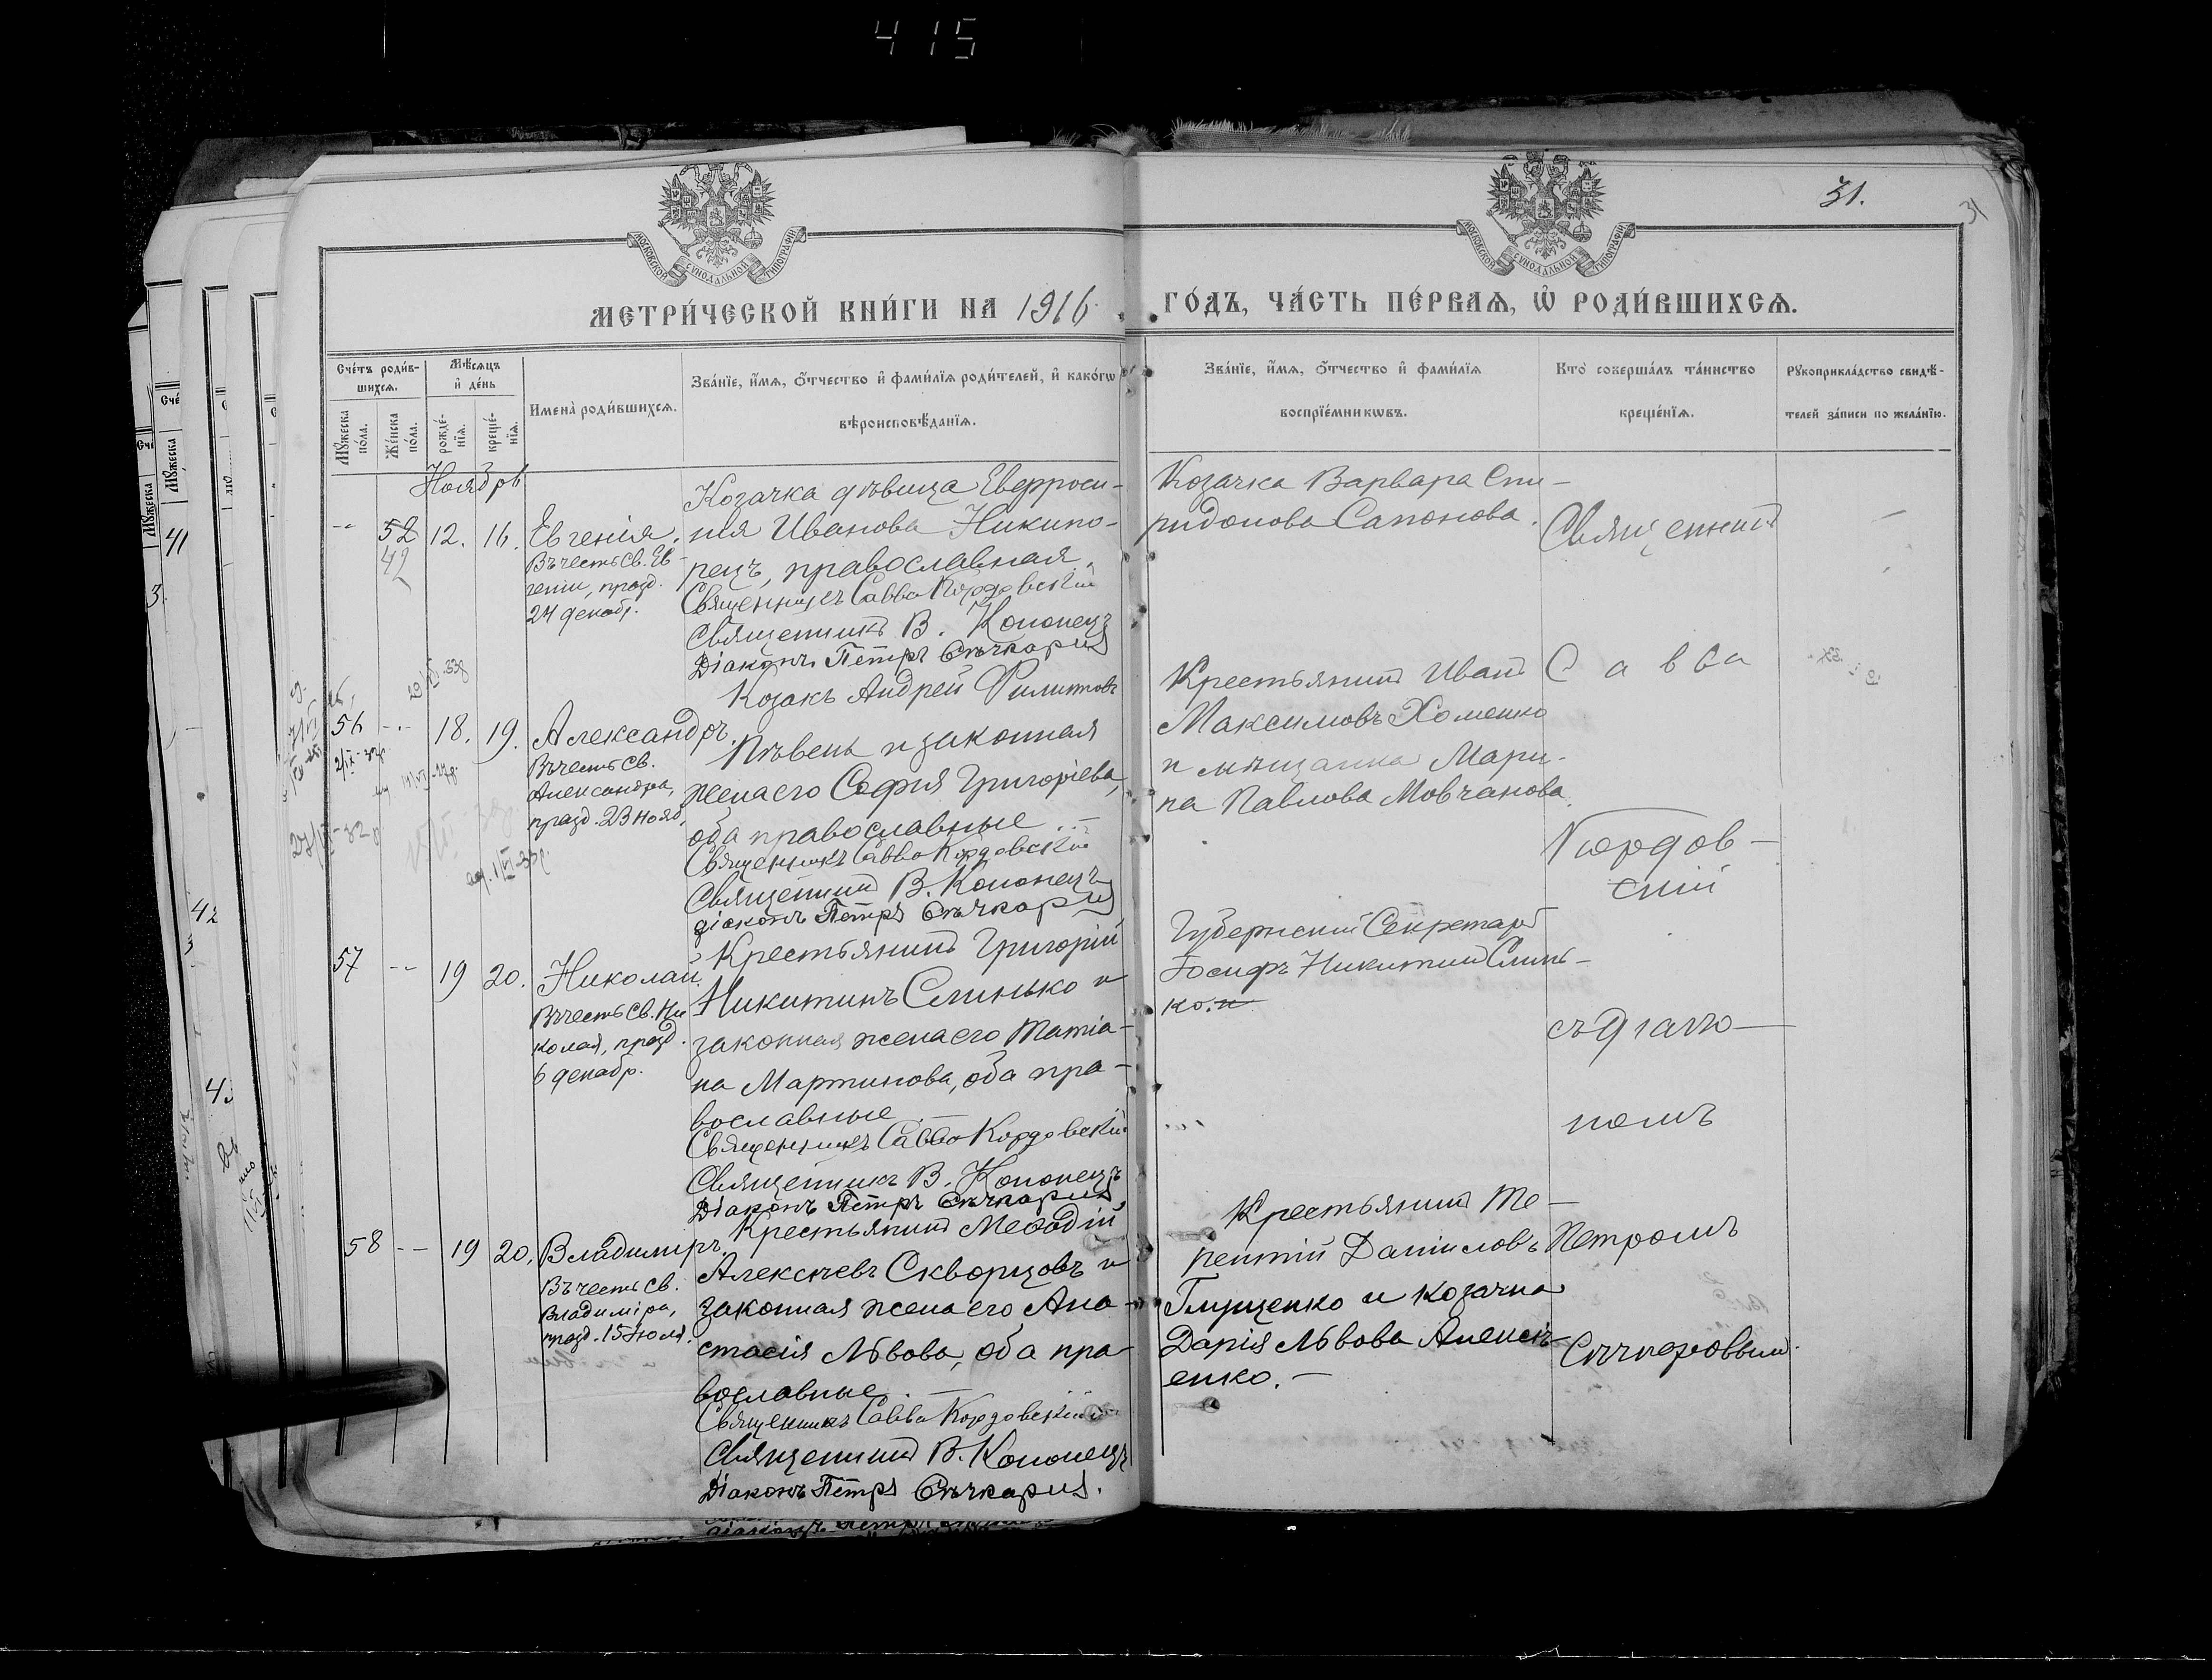 415
31.
31
МОСКОВСКОЙ СУНОДАЛЬНОЙ ТИПОГРАФІИ
МОСКОВСКОЙ СУНОДАЛЬНОЙ ТИПОГРАФІИ
МЕТРИ́ЧЕСКОЙ КНИ́ГИ НА 1916 ГО́ДЪ, ЧА́СТЬ ПЕ́РВАѦ, Ѽ РОДИ́ВШИХСѦ.
Сче́тъ роди́в-
шихсѧ.
Мꙋ́жеска по́ла.
Же́нска по́ла.
Мѣ́сѧцъ и҆ де́нь
рожде́-нїѧ.
креще́-нїѧ.
Имена̀ роди́вшихсѧ.
Зва́нїе, и҆́мѧ, ѻ҆́тчество и҆ фами́лїѧ роди́телей, и҆ како́гѡ
вѣроисповѣ́данїѧ.
Зва́нїе, и҆́мѧ, ѻ҆́тчество и҆ фами́лїѧ
воспрїе́мникѡвъ.
Кто̀ соверша́лъ та́инство
креще́нїѧ.
Рꙋкоприкла́дство свидѣ́-
телей за́писи по жела́нїю.
Ноябрь
52
42
12. 16. Евгенія.
Въ честь Св. Ев-
геніи, празд.
24 декабр.
Козачка дѣвица Евфроси-
нія Иванова Никипо-
рецъ, православная.
Священникъ Савва Кордовскій
Священникъ В. Кононецъ
Діаконъ Петръ Сѣчкаръ
Козачка Варвара Спи-
ридонова Сапонова.
Священникъ
56 -- 18. 19. Александръ.
Въ честь Св.
Александра,
празд. 23 нояб.
Козакъ Андрей Филиповъ
Пѣвень и законная
жена его Софія Григоріева,
оба православные. —
Священникъ Савва Кордовскій
Священникъ В. Кононецъ
діаконъ Петръ Сѣчкаръ
Крестьянинъ Иванъ
Максимовъ Хоменко
и мѣщанка Мари-
на Павлова Мовчанова.
Савва
Кордов-
скій
57 -- 19 20. Николай.
Въ честь Св. Ни
колая, празд.
6 декабр.
Крестьянинъ Григорій
Никитинъ Слинько и
законная жена его Татіа-
на Мартинова, оба пра-
вославные. —
Священникъ Савва Кордовскій
Священникъ В. Кононецъ
Діаконъ Петръ Сѣчкаръ
Губернскій Секретарь
Іосифъ Никитинъ Слинь-
ко. и
съ діако-
номъ
58 -- 19 20. Владиміръ.
Въ честь Св.
Владиміра,
празд. 15 Іюля.
Крестьянинъ Меѳодій
Алексѣевъ Скворцовъ и
законная жена его Ана-
стасія Львова, оба пра-
вославные. —
Священникъ Савва Кордовскій
Священникъ В. Кононецъ
Діаконъ Петръ Сѣчкаръ.
Крестьянинъ Те-
рентій Даніиловъ
Глущенко и козачка
Дарія Львова Алексѣ-
енко. —
Петромъ
Сѣчкаровымъ.